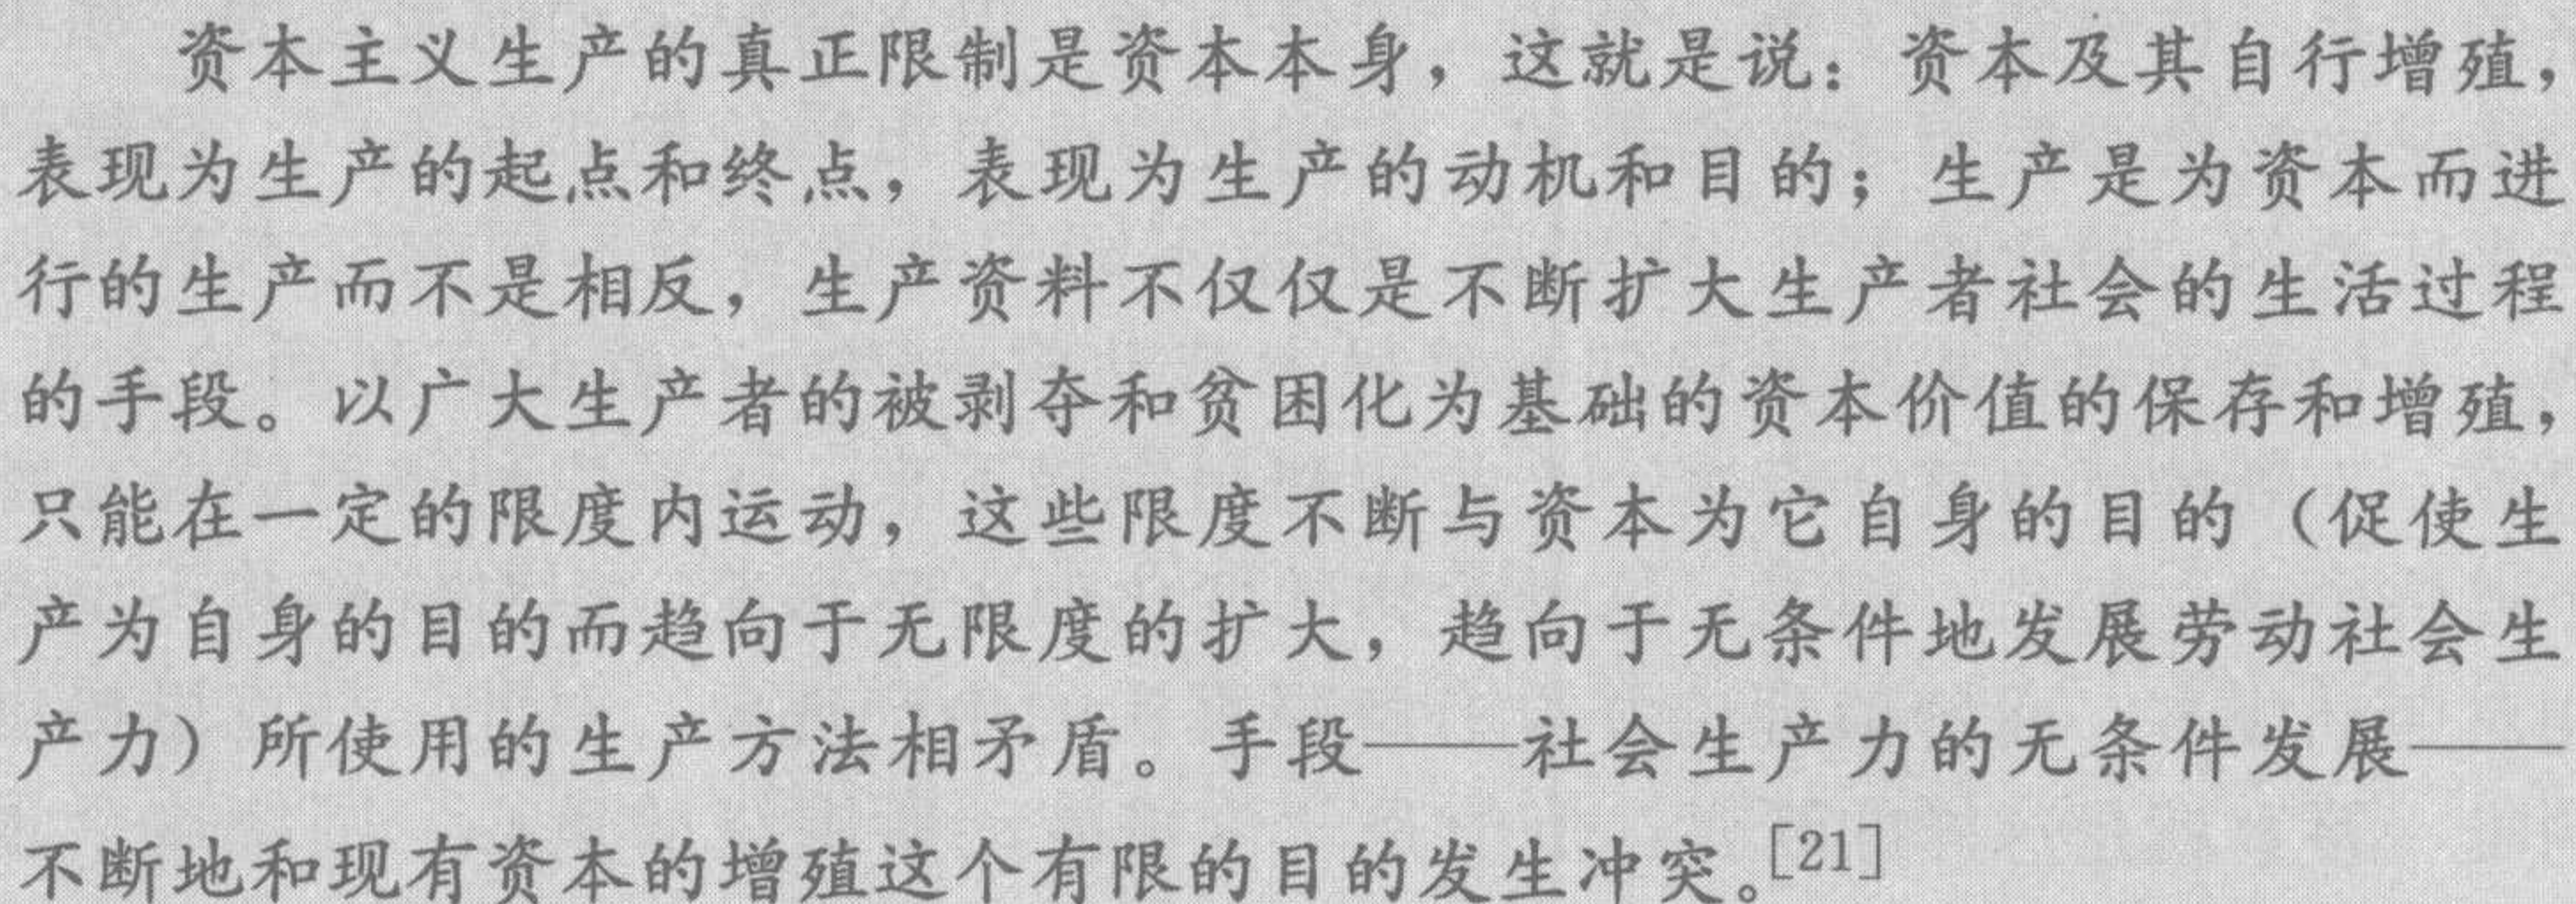 资本主义生产的真正限制是资本本身，这就是说：资本及其自行增殖，
表现为生产的起点和终点，表现为生产的动机和目的；生产是为资本而进
行的生产而不是相反，生产资料不仅仅是不断扩大生产者社会的生活过程
的手段。以广大生产者的被剥夺和贫困化为基础的资本价值的保存和增殖，
只能在一定的限度内运动，这些限度不断与资本为它自身的目的（促使生
产为自身的目的而趋向于无限度的扩大，趋向于无条件地发展劳动社会生
产力）所使用的生产方法相矛盾。手段——社会生产力的无条件发展——
不断地和现有资本的增殖这个有限的目的发生冲突。[21]